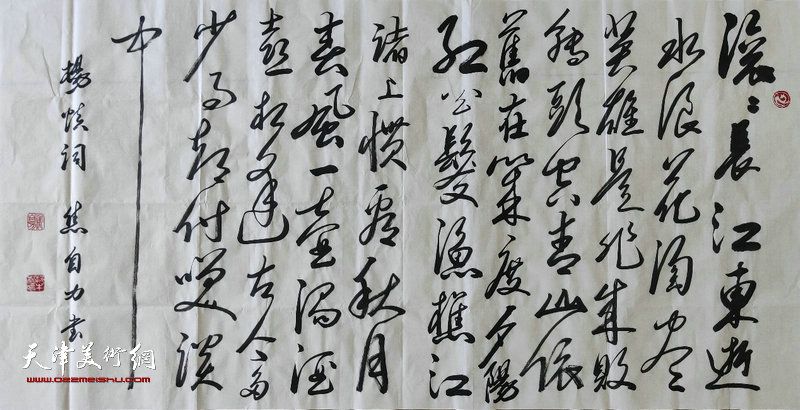 滚滚長江東逝
水浪花淘尽
英雄是非成敗
转頭空青山依
舊在幾度夕陽
红白髮漁樵江
渚上惯看秋月
春風一壶濁酒
喜相逢古今多
少事都付笑談
中
楊慎词 焦自力书
天津美術網
www.022meishu.com